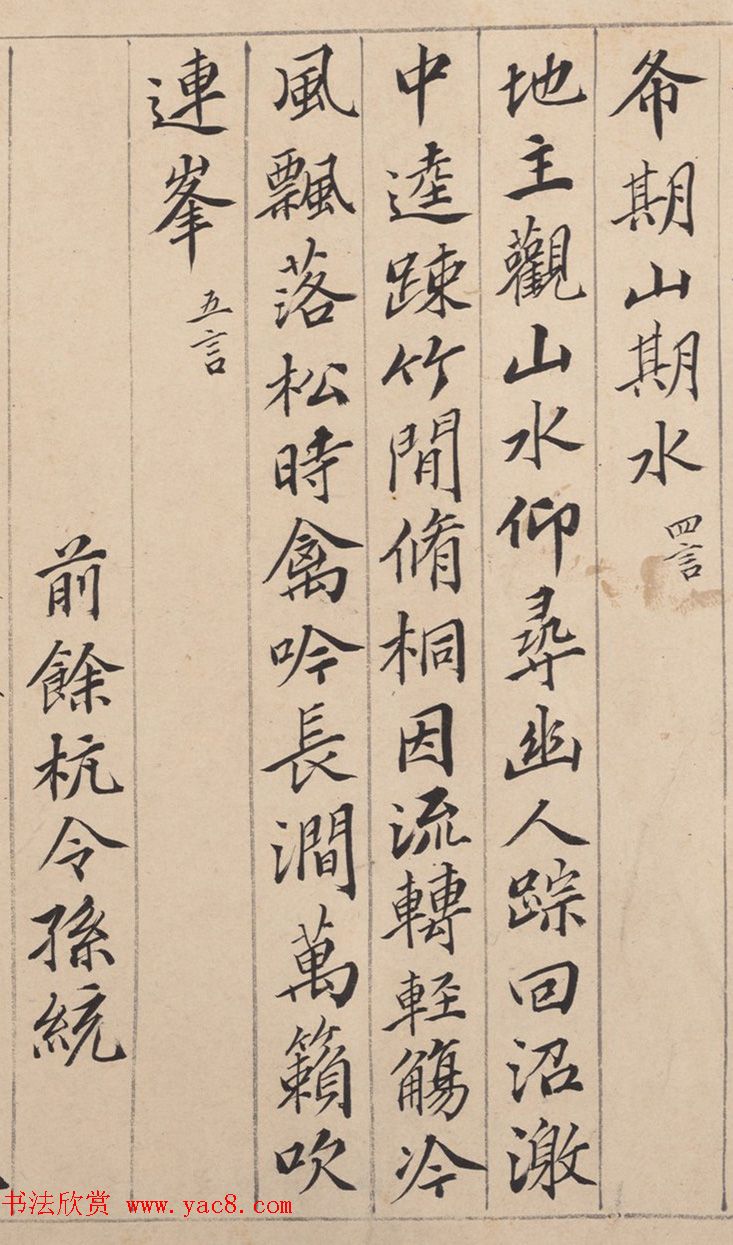 希期山期水 四言
地主觀山水仰尋幽人踪回沼激
中逵踈竹間脩桐因流轉輕觴冷
風飄落松時禽吟長澗萬籟吹
連峯 五言
前餘杭令孫統
书法欣赏 www.yac8.com